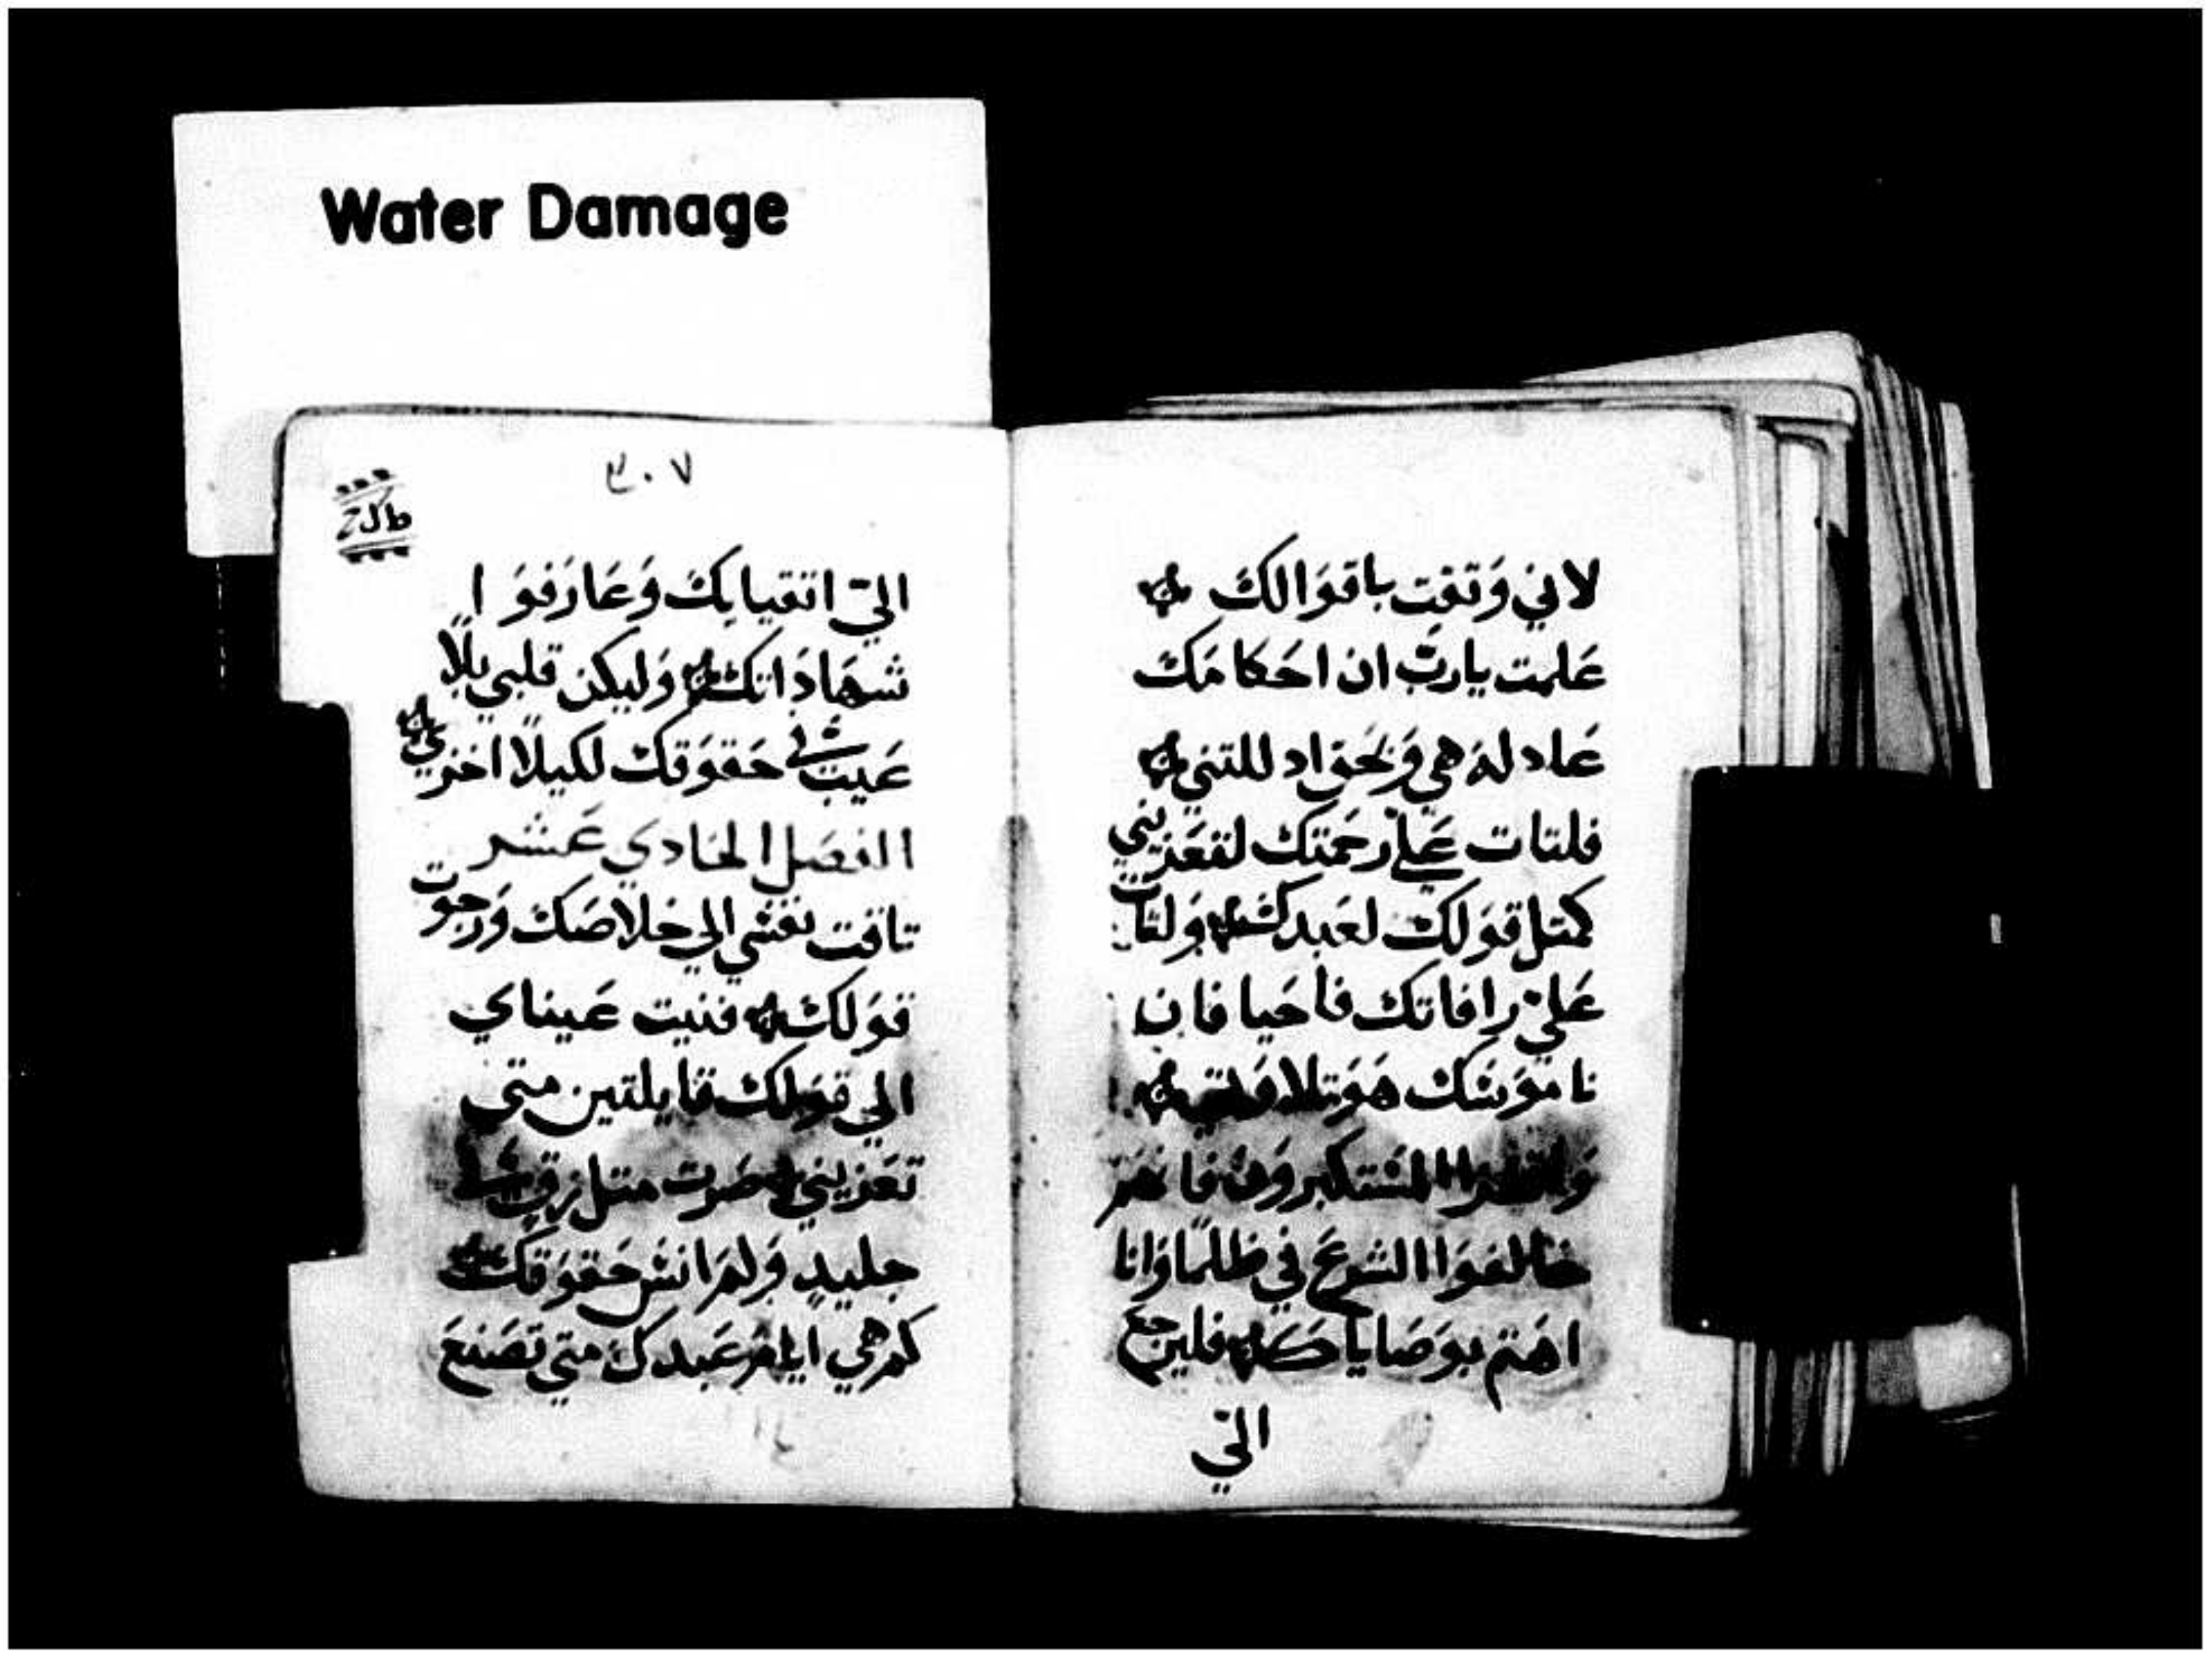 Water Damage
لاني وَتقت باقوَالكَ
عَلمت يارَبّ ان احَكامَك
عَادلهَ هي وَبحَق اد للتني
فلتات عَليّ رَحمَتك لتعَزيني
كمتل قوَلكَ لعَبدكَ وَلتات
عَليّ رافاتك فاحَيا فان
نامَوسَك هَوَ تلاوَتي
المسَتكبروَن فانهَم
خالفوَا الشرعَ في ظلماوَانا
اهَتم بوَصَاياكَ فليرجعَ
اليّ
٣٠٧
اليّ اتقيايكَ وَعَارَفوَا
شهَادَاتكَ وَليكن قلبي بلا
عَيبَ في حَقوَقكَ لكيلا اخزي
الفصَل الحَادي عَشر
تاقت نفسَي الي خلاصَك وَرجوَت
قوَلكَ فنيت عَيناي
الي قوَلك قايلتين متي
تعَزيني صَرت متل زق
جليدٍ وَلمَ انسَ حَقوَقكَ
كم هي ايامَ عَبدكَ متي تصَنعَ